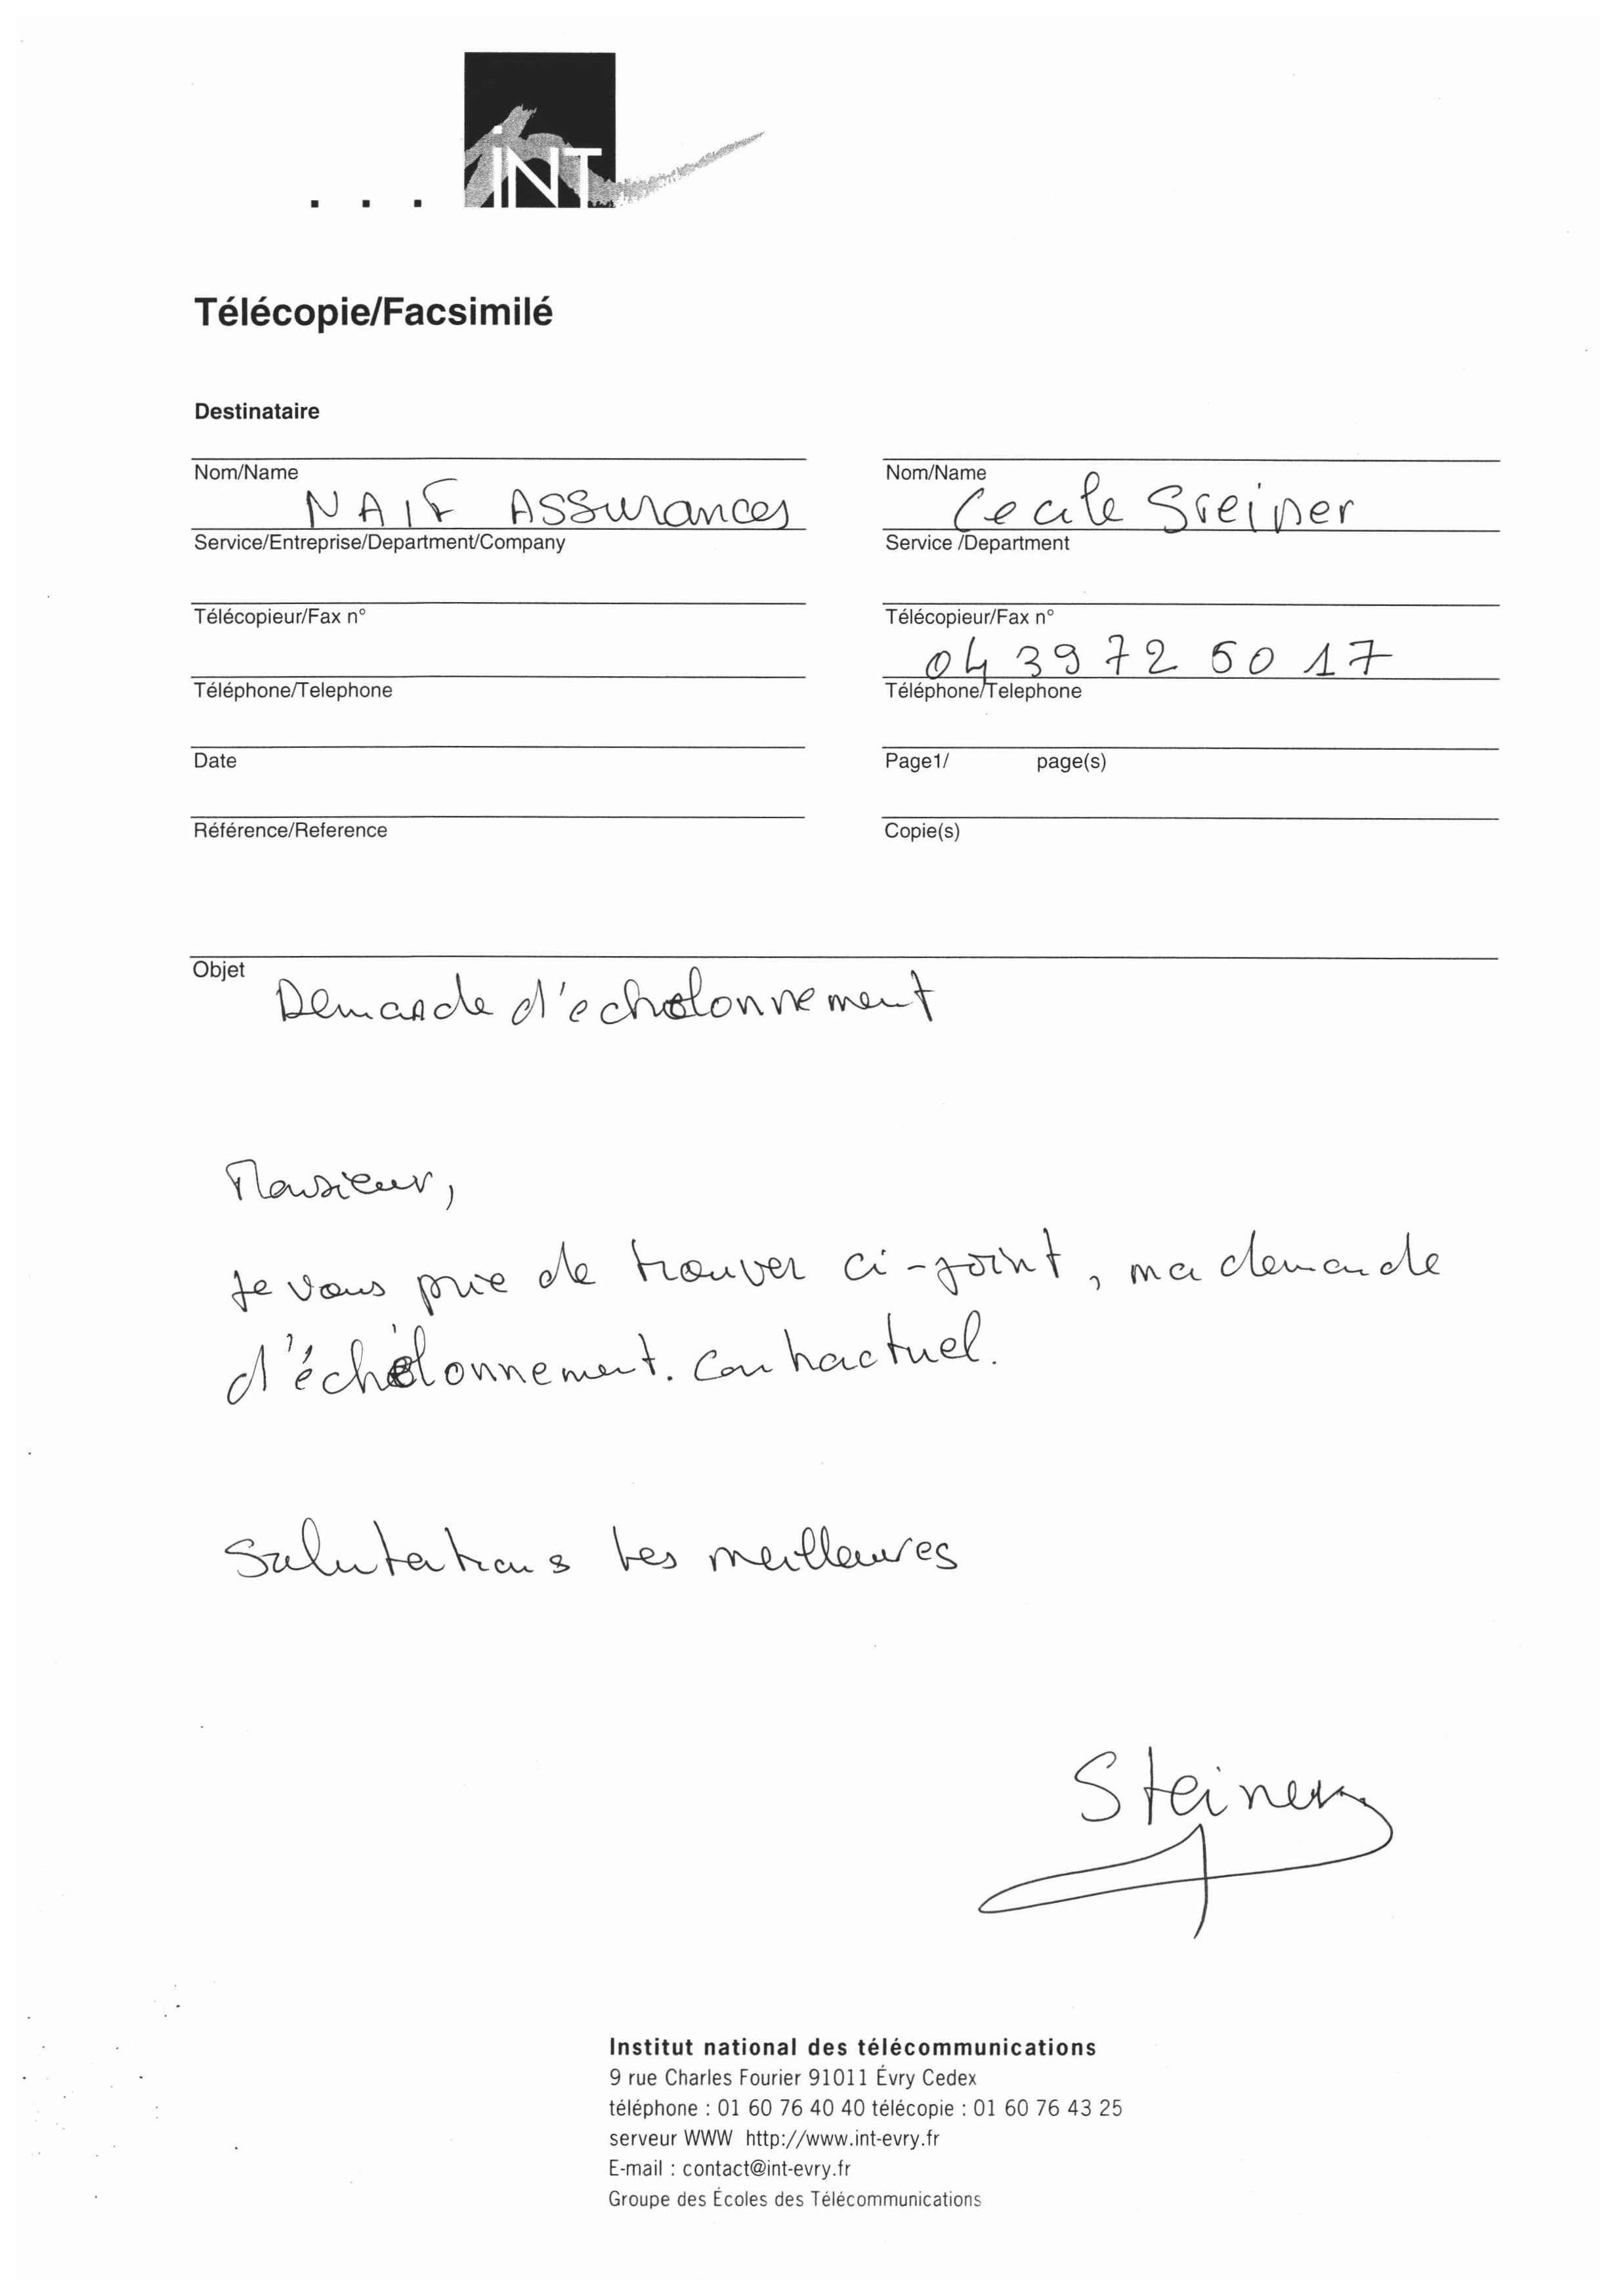 ... INT
Télécopie/Facsimilé
Destinataire
Nom/Name
NAIF Assurances
Service/Entreprise/Department/Company
Télécopieur/Fax n°
Téléphone/Telephone
Date
Référence/Reference
Nom/Name
Cecile Steiner
Service /Department
Télécopieur/Fax n°
04 39 72 60 17
Téléphone/Telephone
Page1/ page(s)
Copie(s)
Objet
Demande d'echelonnement
Monsieur,
Je vous prie de trouver ci-joint, ma demande
d'échelonnement. Contractuel.
Salutations les meilleures
Steiner
Institut national des télécommunications
9 rue Charles Fourier 91011 Évry Cedex
téléphone : 01 60 76 40 40 télécopie : 01 60 76 43 25
serveur WWW http://www.int-evry.fr
E-mail : contact@int-evry.fr
Groupe des Écoles des Télécommunications